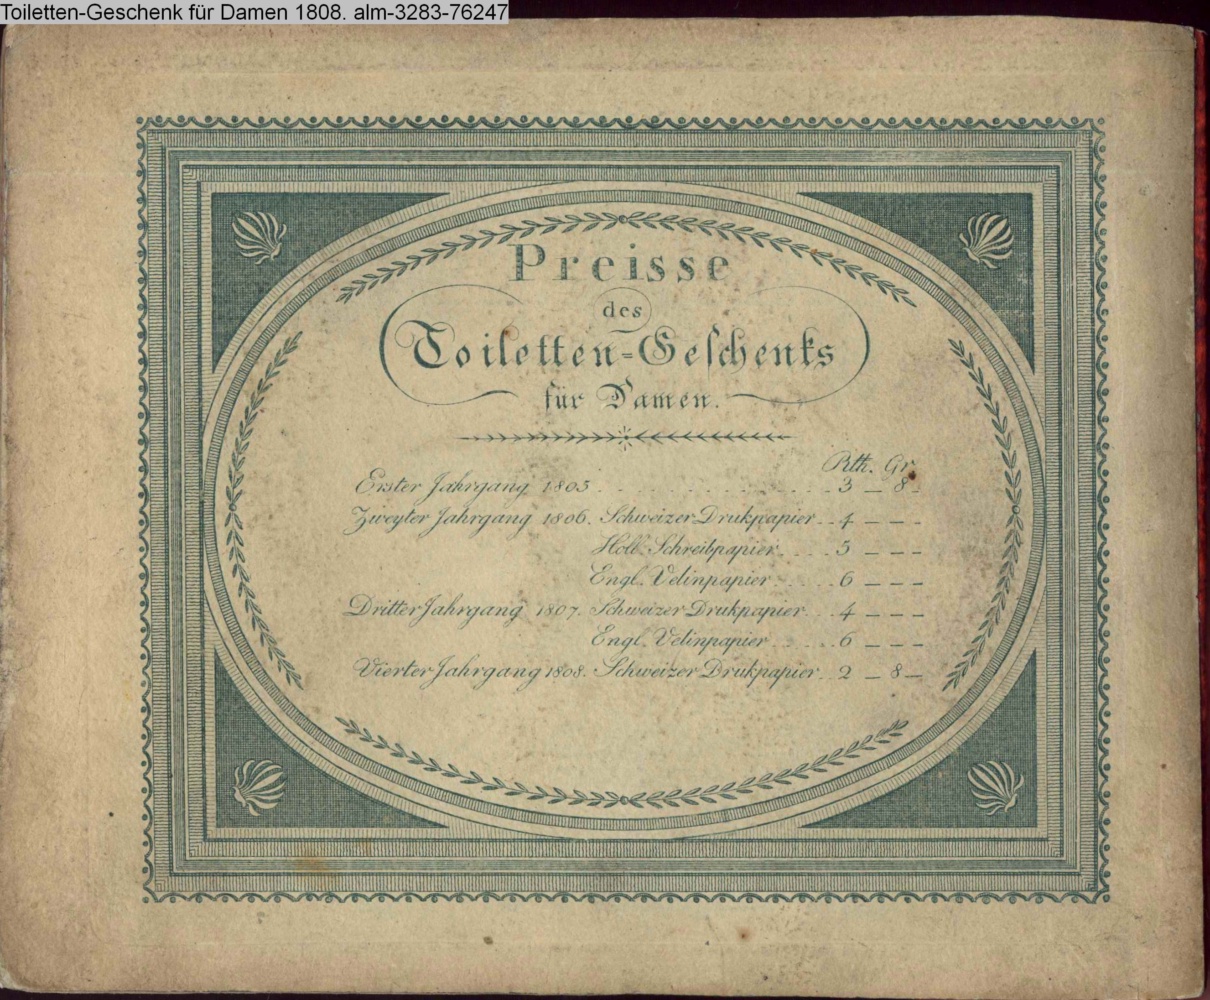 Toiletten-Geschenk für Damen 1808. alm-3283-76247
Preisse
des
Toiletten-Geschenks
für Damen.
Rth. Gr.
Erster Jahrgang 1805 . . . . . . . . . . . . . . 3 _ 8 _
Zweyter Jahrgang 1806. Schweizer Drukpapier . . 4 _ _ _
Holl. Schreibpapier . . . . 5 _ _ _
Engl. Velinpapier . . . . . 6 _ _ _
Dritter Jahrgang 1807. Schweizer Drukpapier . . . 4 _ _ _
Engl. Velinpapier . . . . . 6 _ _ _
Vierter Jahrgang 1808. Schweizer Drukpapier . . 2 _ 8 _